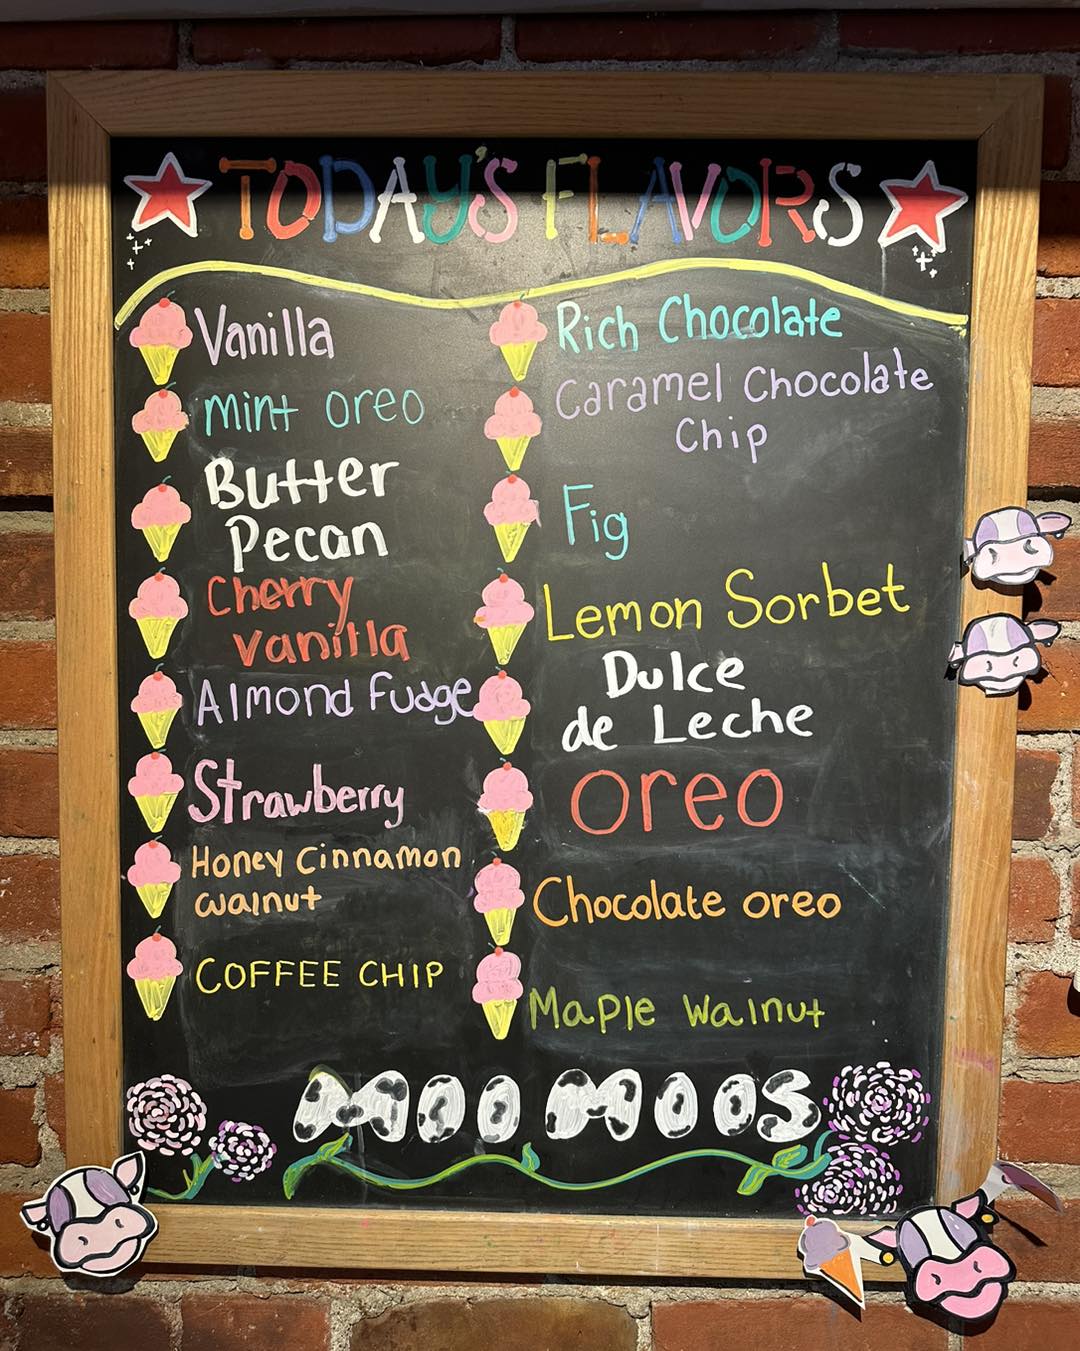 TODAY'S FLAVORS
Vanilla
mint oreo
Butter
Pecan
Cherry
vanilla
Almond Fudge
Strawberry
Honey Cinnamon
walnut
COFFEE CHIP
Rich Chocolate
Caramel Chocolate
Chip
Fig
Lemon Sorbet
Dulce
de Leche
oreo
Chocolate oreo
Maple Walnut
MOO MOOS